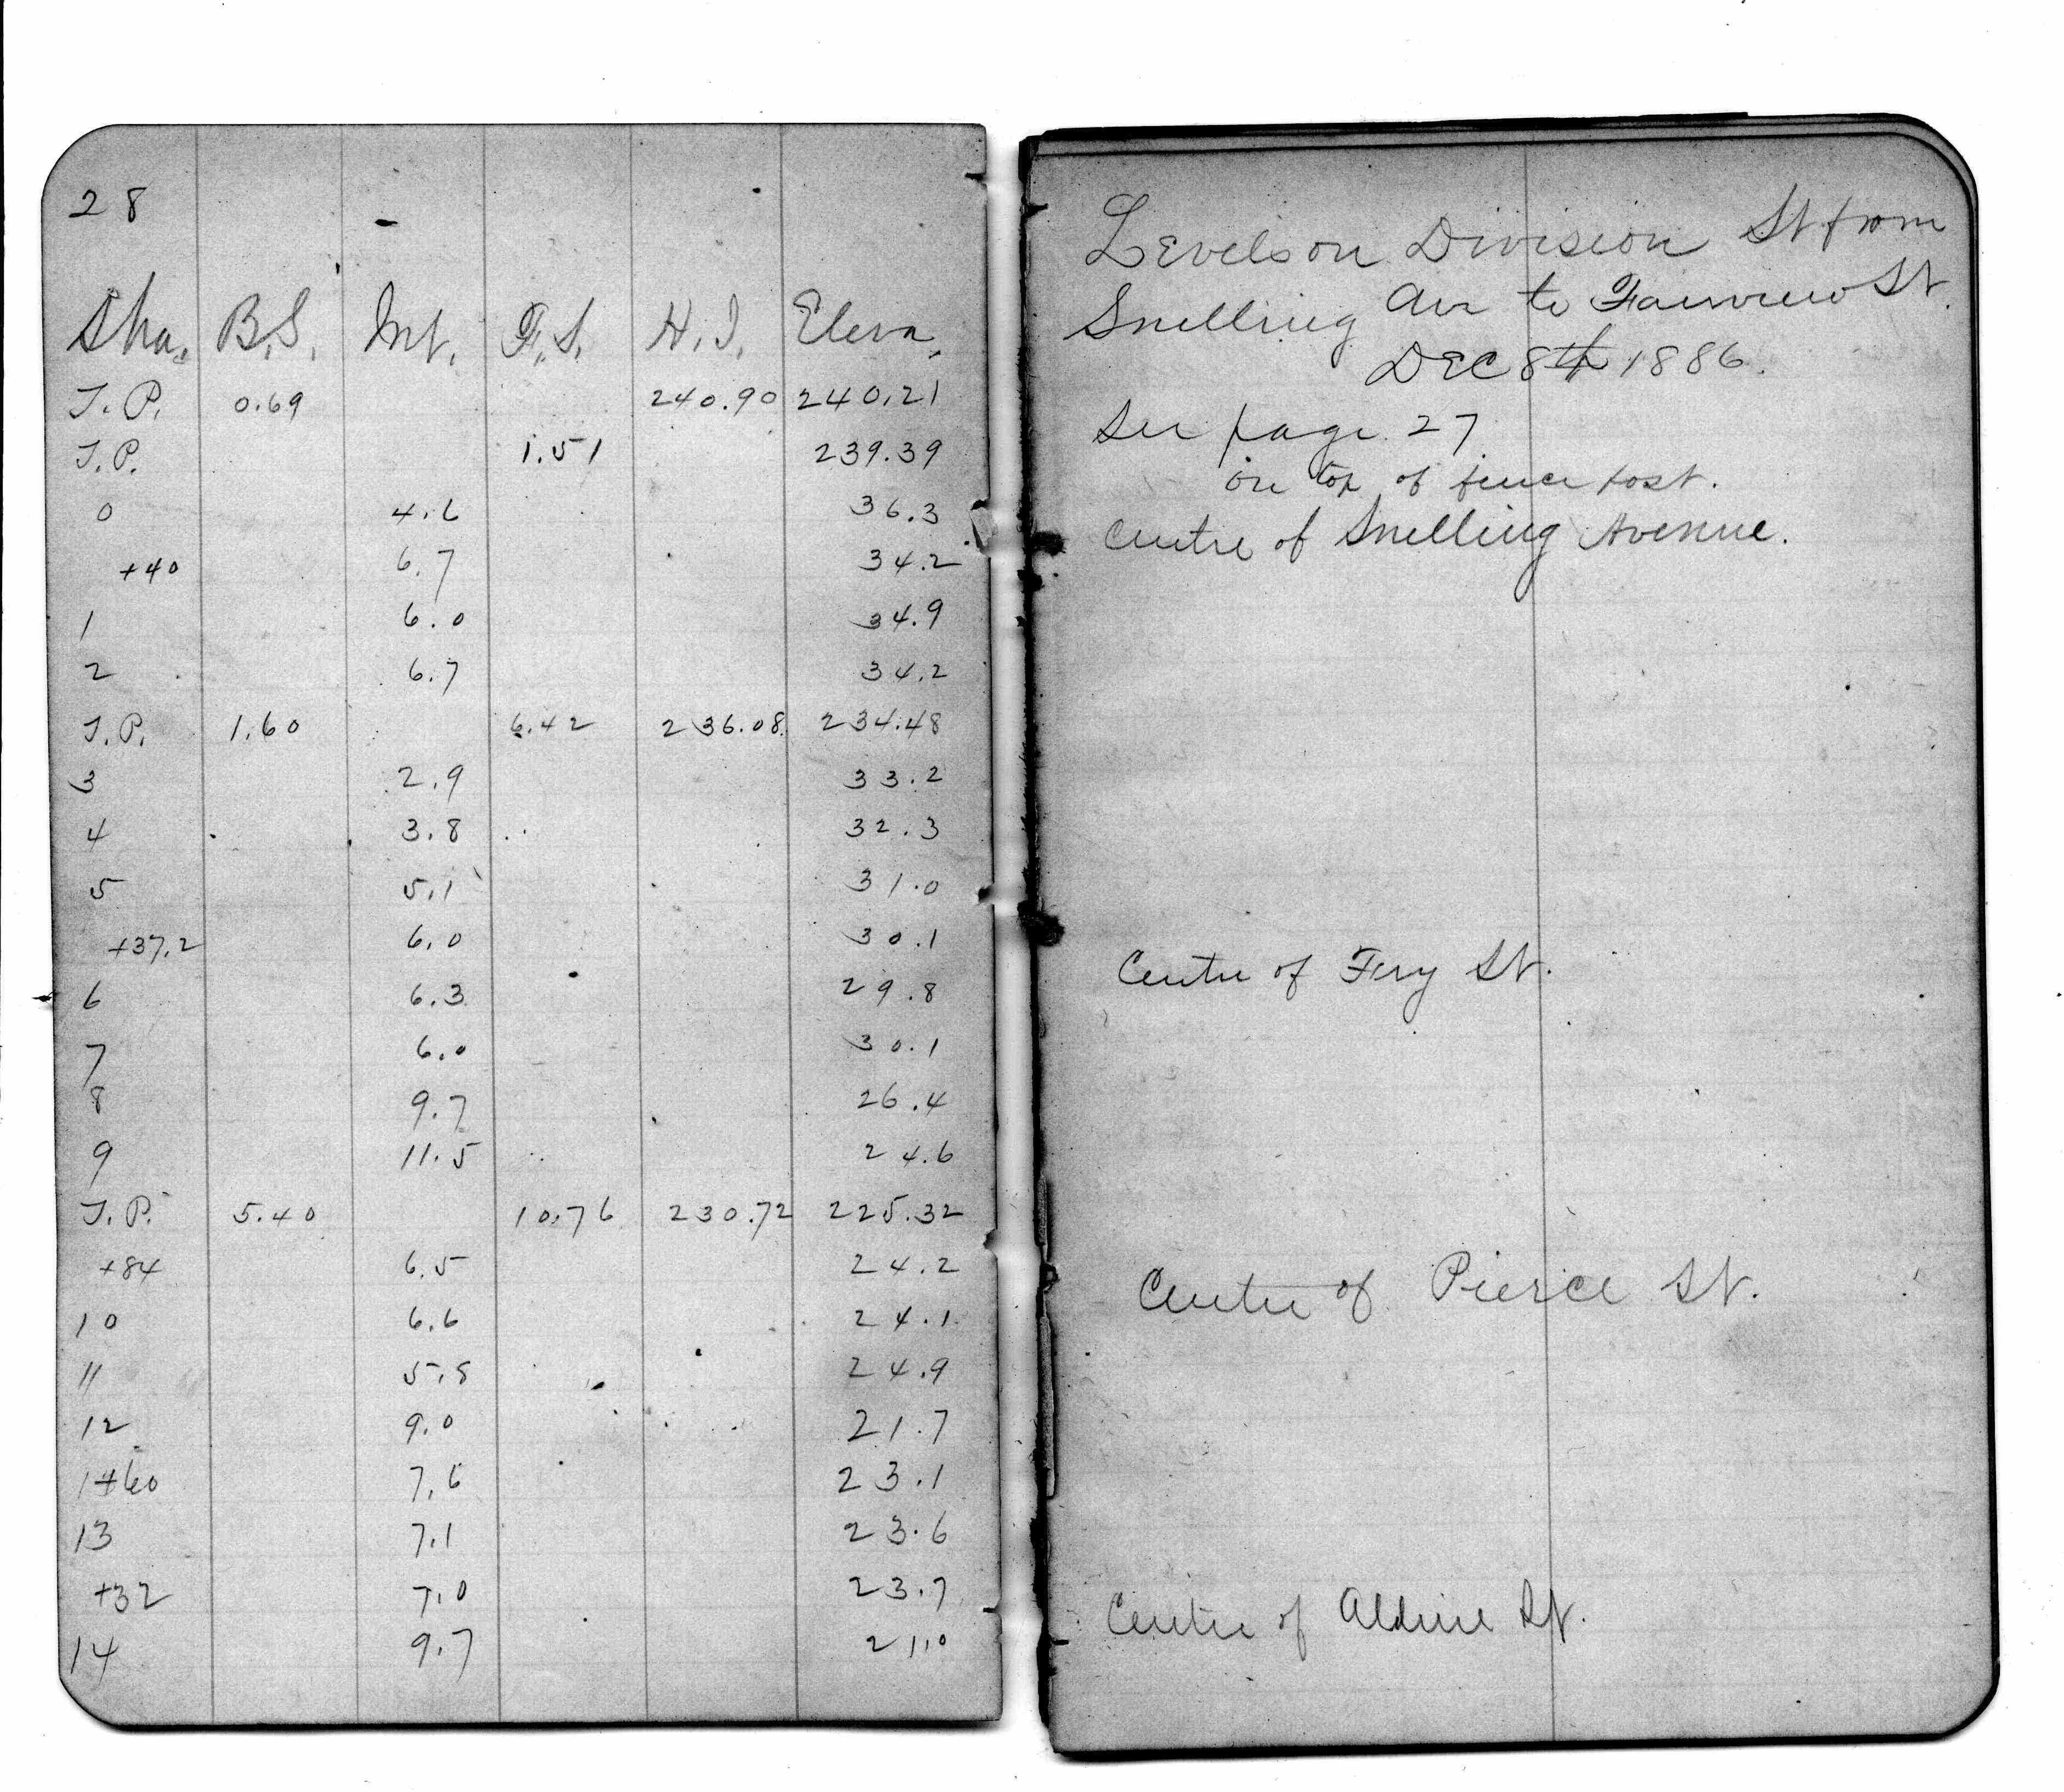 28
Sta. B.S. Int. F.S. H.I. Eleva.
T.P. 0.69 240.90 240.21
T.P. 1.51 239.39
0 4.6 36.3
+40 6.7 34.2
1 6.0 34.9
2 6.7 34.2
T.P. 1.60 6.42 236.08 234.48
3 2.9 33.2
4 3.8 32.3
5 5.1 31.0
+37.2 6.0 30.1
6 6.3 29.8
7 6.0 30.1
8 9.7 26.4
9 11.5 24.6
T.P. 5.40 10.76 230.72 225.32
+84 6.5 24.2
10 6.6 24.1
11 5.8 24.9
12 9.0 21.7
+60 7.6 23.1
13 7.1 23.6
+32 7.0 23.7
14 9.7 21.0
Levels on Division St from
Snelling Ave to Fairview St.
DEC 8th 1886.
See page 27
on top of fence post.
Centre of Snelling Avenue.
Centre of Fry St.
Centre of Pierce St.
Centre of Aldine St.